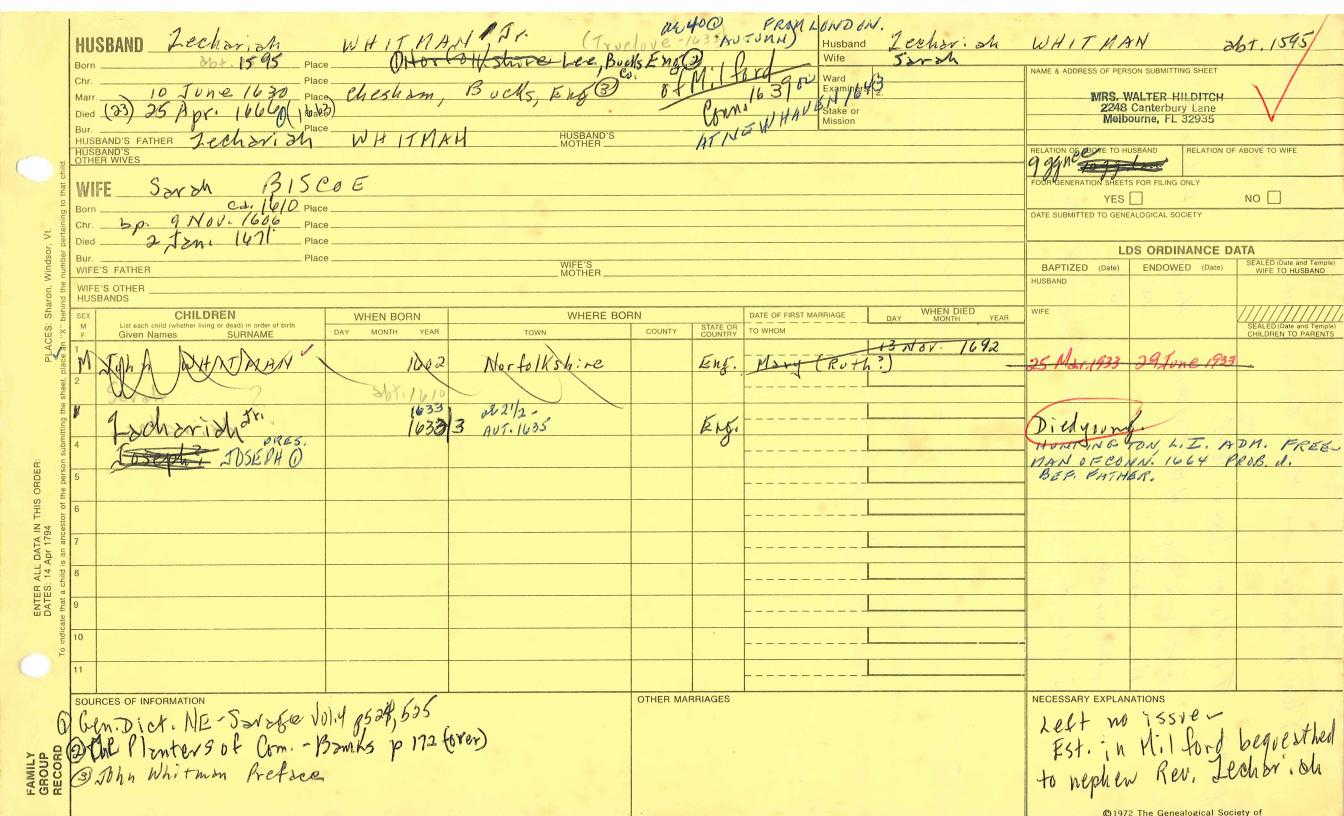 HUSBAND Zechariah WHITMAN Jr. (Truelove - 1635 AUTUMN) ae 40 ① FROM LONDON.
Born abt. 1595 Place ① Norfolkshire Lee, Bucks Eng ②
Chr. Place
Marr. 10 June 1630 Place Chesham, Bucks, Co. Eng ③ of Milford
Died (23) 25 Apr. 1666 Place Conn. 1639 or
AT NEW HAVEN 1643
Bur. Place
HUSBAND'S FATHER Zechariah WHITMAN HUSBAND'S MOTHER
HUSBAND'S OTHER WIVES
WIFE Sarah BISCOE
Born ca. 1610 Place
Chr. bp. 9 Nov. 1606 Place
Died 2 Jan. 1671 Place
Bur. Place
WIFE'S FATHER WIFE'S MOTHER
WIFE'S OTHER HUSBANDS
Husband Zechariah WHITMAN abt. 1595
Wife Sarah
Ward Examiners
Stake or Mission
NAME & ADDRESS OF PERSON SUBMITTING SHEET
MRS. WALTER HILDITCH
2248 Canterbury Lane
Melbourne, FL 32935
RELATION OF ABOVE TO HUSBAND RELATION OF ABOVE TO WIFE
FOUR GENERATION SHEETS FOR FILING ONLY
YES NO
DATE SUBMITTED TO GENEALOGICAL SOCIETY
LDS ORDINANCE DATA
BAPTIZED (Date) ENDOWED (Date) SEALED (Date and Temple) WIFE TO HUSBAND
HUSBAND
WIFE
SEALED (Date and Temple) CHILDREN TO PARENTS
SEX M F CHILDREN WHEN BORN WHERE BORN DATE OF FIRST MARRIAGE WHEN DIED
List each child (whether living or dead) in order of birth
Given Names SURNAME DAY MONTH YEAR TOWN COUNTY STATE OR COUNTRY TO WHOM DAY MONTH YEAR
1 M John WHITMAN 1602 Norfolkshire Eng. Mary (Ruth?) 13 Nov. 1692 25 Mar. 1933 29 June 1933
2 Sarah abt. 1610
Zachariah Jr. 1633 ae 2 1/2 - AUT. 1635 Eng. Died young.
4 JOSEPH ①
HUNTINGTON, L.I. ADM. FREE-
MAN OF CONN. 1664 PROB. d.
BEF. FATHER.
5
6
7
8
9
10
11
PLACES: Sharon, Windsor, Vt.
ENTER ALL DATA IN THIS ORDER:
DATES: 14 Apr 1794
To indicate that a child is an ancestor of the person submitting the sheet, place an "X" behind the number pertaining to that child.
FAMILY GROUP RECORD
SOURCES OF INFORMATION
① Gen. Dict. NE - Savage Vol. 4 p 524, 525
② The Planters of Com. - Banks p 172 (over)
③ John Whitman Preface
OTHER MARRIAGES
NECESSARY EXPLANATIONS
Left no issue -
Est. in Milford bequeathed
to nephew Rev. Zechariah
©1972 The Genealogical Society of